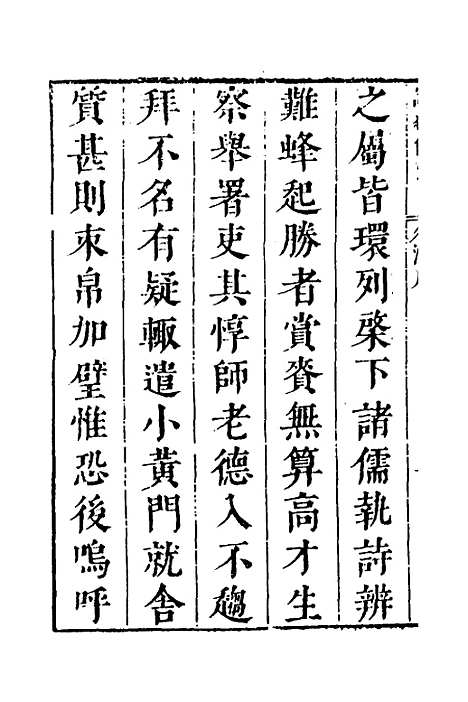 之屬皆環列棨下諸儒執許辨
難蜂起勝者賞賚無算高才生
察舉署吏其惇師老德入不趨
拜不名有疑輙遣小黃門就舍
質甚則束帛加璧惟恐後嗚呼